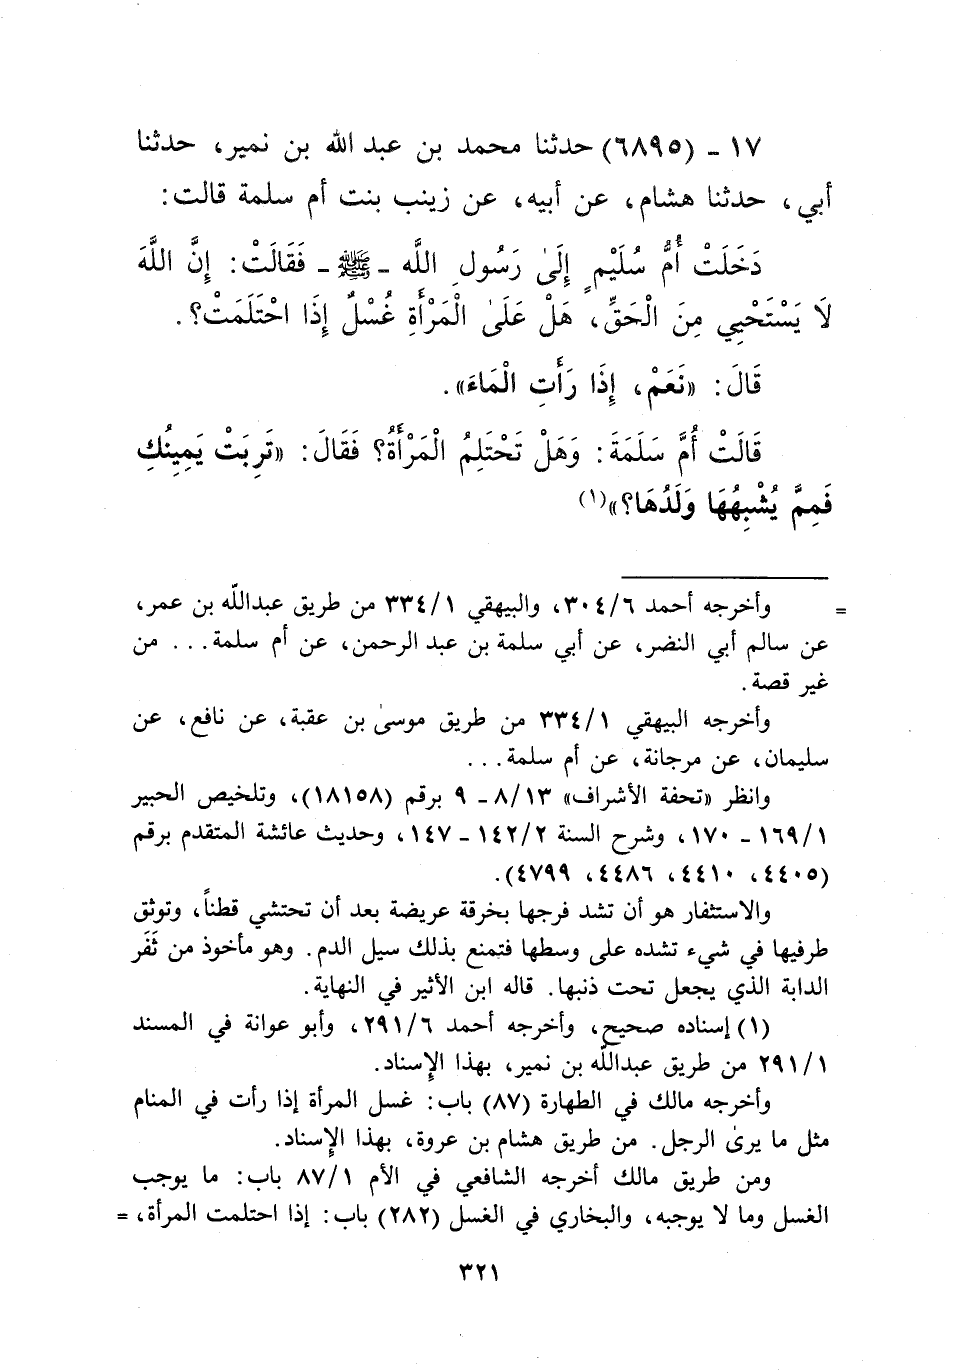 ١٧ ـ (٦٨٩٥) حدثنا محمد بن عبد الله بن نمير، حدثنا
أبي، حدثنا هشام، عن أبيه، عن زينب بنت أم سلمة قالت:
دَخَلَتْ أُمُّ سُلَيْمٍ إِلَىٰ رَسُولِ اللَّه ـ ﷺ ـ فَقَالَتْ: إِنَّ اللَّهَ
لَا يَسْتَحْيِي مِنَ الْحَقِّ، هَلْ عَلَىٰ الْمَرْأَةِ غُسْلٌ إِذَا احْتَلَمَتْ؟.
قَالَ: «نَعَمْ، إِذَا رَأَتِ الْمَاءَ».
قَالَتْ أُمَّ سَلَمَةَ: وَهَلْ تَحْتَلِمُ الْمَرْأَةُ؟ فَقَالَ: «تَرِبَتْ يَمِينُكِ
فَمِمَّ يُشْبِهُهَا وَلَدُهَا؟»(١)
= وأخرجه أحمد ٣٠٤/٦، والبيهقي ٣٣٤/١ من طريق عبدالله بن عمر،
عن سالم أبي النضر، عن أبي سلمة بن عبد الرحمن، عن أم سلمة... من
غير قصة.
وأخرجه البيهقي ٣٣٤/١ من طريق موسىٰ بن عقبة، عن نافع، عن
سليمان، عن مرجانة، عن أم سلمة...
وانظر «تحفة الأشراف» ٨/١٣ ـ ٩ برقم (١٨١٥٨)، وتلخيص الحبير
١٦٩/١ ـ ١٧٠، وشرح السنة ١٤٢/٢ ـ ١٤٧، وحديث عائشة المتقدم برقم
(٤٤٠٥، ٤٤١٠، ٤٤٨٦، ٤٧٩٩).
والاستثفار هو أن تشد فرجها بخرقة عريضة بعد أن تحتشي قطناً، وتوثق
طرفيها في شيء تشده على وسطها فتمنع بذلك سيل الدم. وهو مأخوذ من ثَفَر
الدابة الذي يجعل تحت ذنبها. قاله ابن الأثير في النهاية.
(١) إسناده صحيح، وأخرجه أحمد ٢٩١/٦، وأبو عوانة في المسند
٢٩١/١ من طريق عبدالله بن نمير، بهذا الإسناد.
وأخرجه مالك في الطهارة (٨٧) باب: غسل المرأة إذا رأت في المنام
مثل ما يرىٰ الرجل. من طريق هشام بن عروة، بهذا الإسناد.
ومن طريق مالك أخرجه الشافعي في الأم ٨٧/١ باب: ما يوجب
الغسل وما لا يوجبه، والبخاري في الغسل (٢٨٢) باب: إذا احتلمت المرأة، =
٣٢١